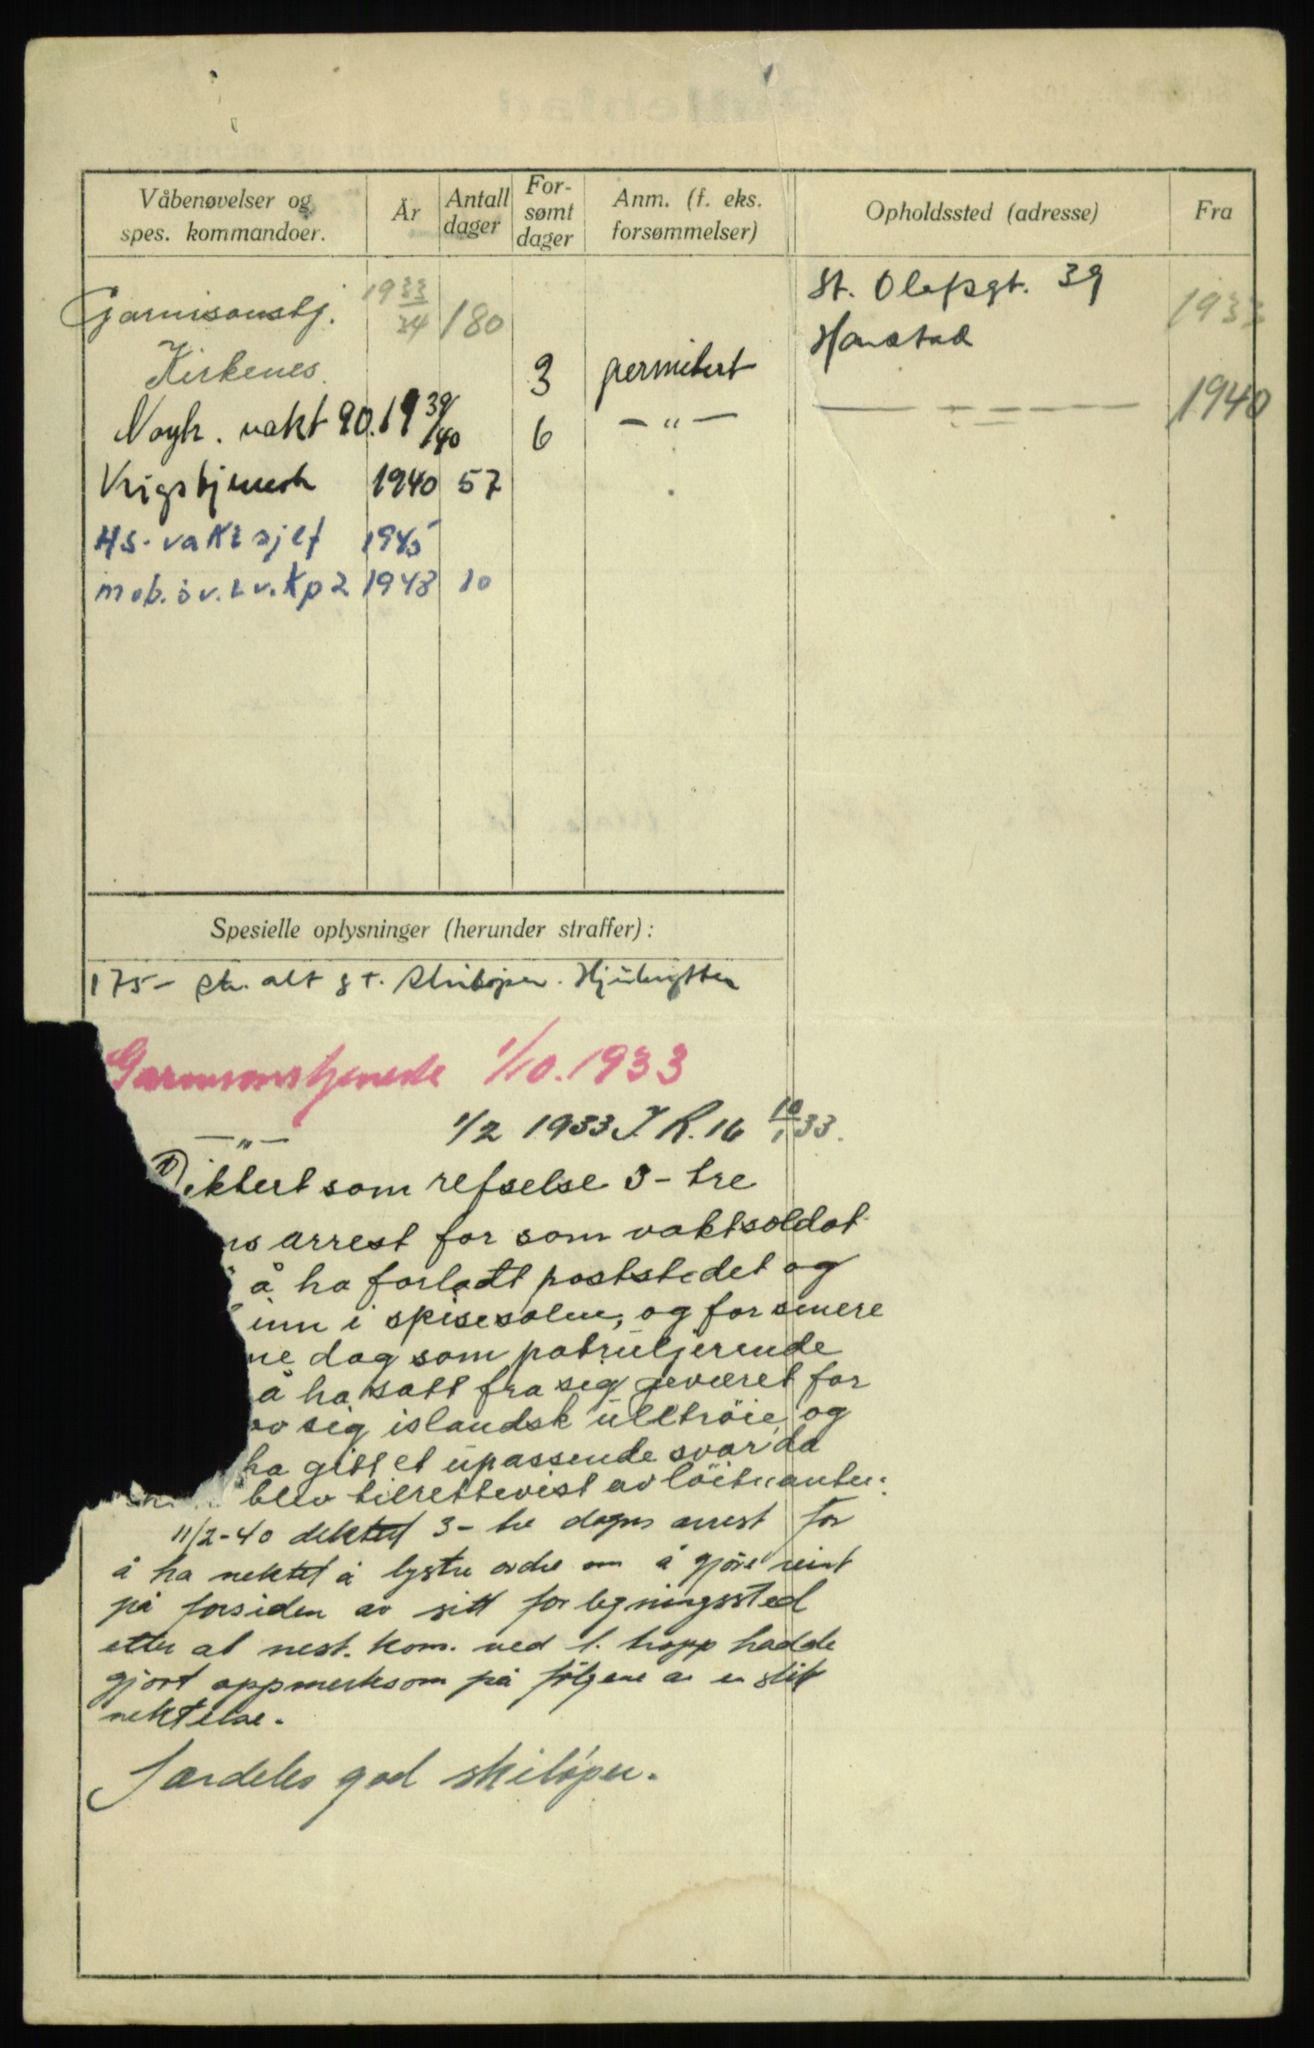 Våbenøvelser og spes. kommandoer. År Antall dager For-sømt dager Anm. (f. eks. forsømmelser) Opholdssted (adresse) Fra
Garnisonstj. 1933/34 180 St. Olafsgt. 39 1933
Kirkenes. 3 permitert Harstad
Nøyt. vakt 90. 1939/40 6 — " — — " — 1940
Krigstjenest 1940 57
HS-vakt sjef 1945
mob.öv.Lv.Kp2 1948 10
Spesielle oplysninger (herunder straffer):
175 - alt g t. Skiløper.
Garnisonstjeneste 1/10.1933
— " — 1/2 1933 I.R. 16 10/1 33.
1) iktert som refselse 3 - tre
ns arrest for som vaktsoldat
å ha forladt poststedet og
inn i spisesalen, og for senere
ne dag som patruljerende
å ha satt fra sig geværet for
av sig islandsk ulltrøie, og
ha gitt et upassende svar da
blev tilrettevist av löitnanten.
11/2-40 diktert 3 - tre dagers arrest for
å ha nektet å lystre ordre om å gjøre reint
på forsiden av sitt forlegningssted
etter at nest. kom. ved 1. tropp hadde
gjort oppmerksom på følgene av en slik
nektelse.
Særdeles god skiløper.